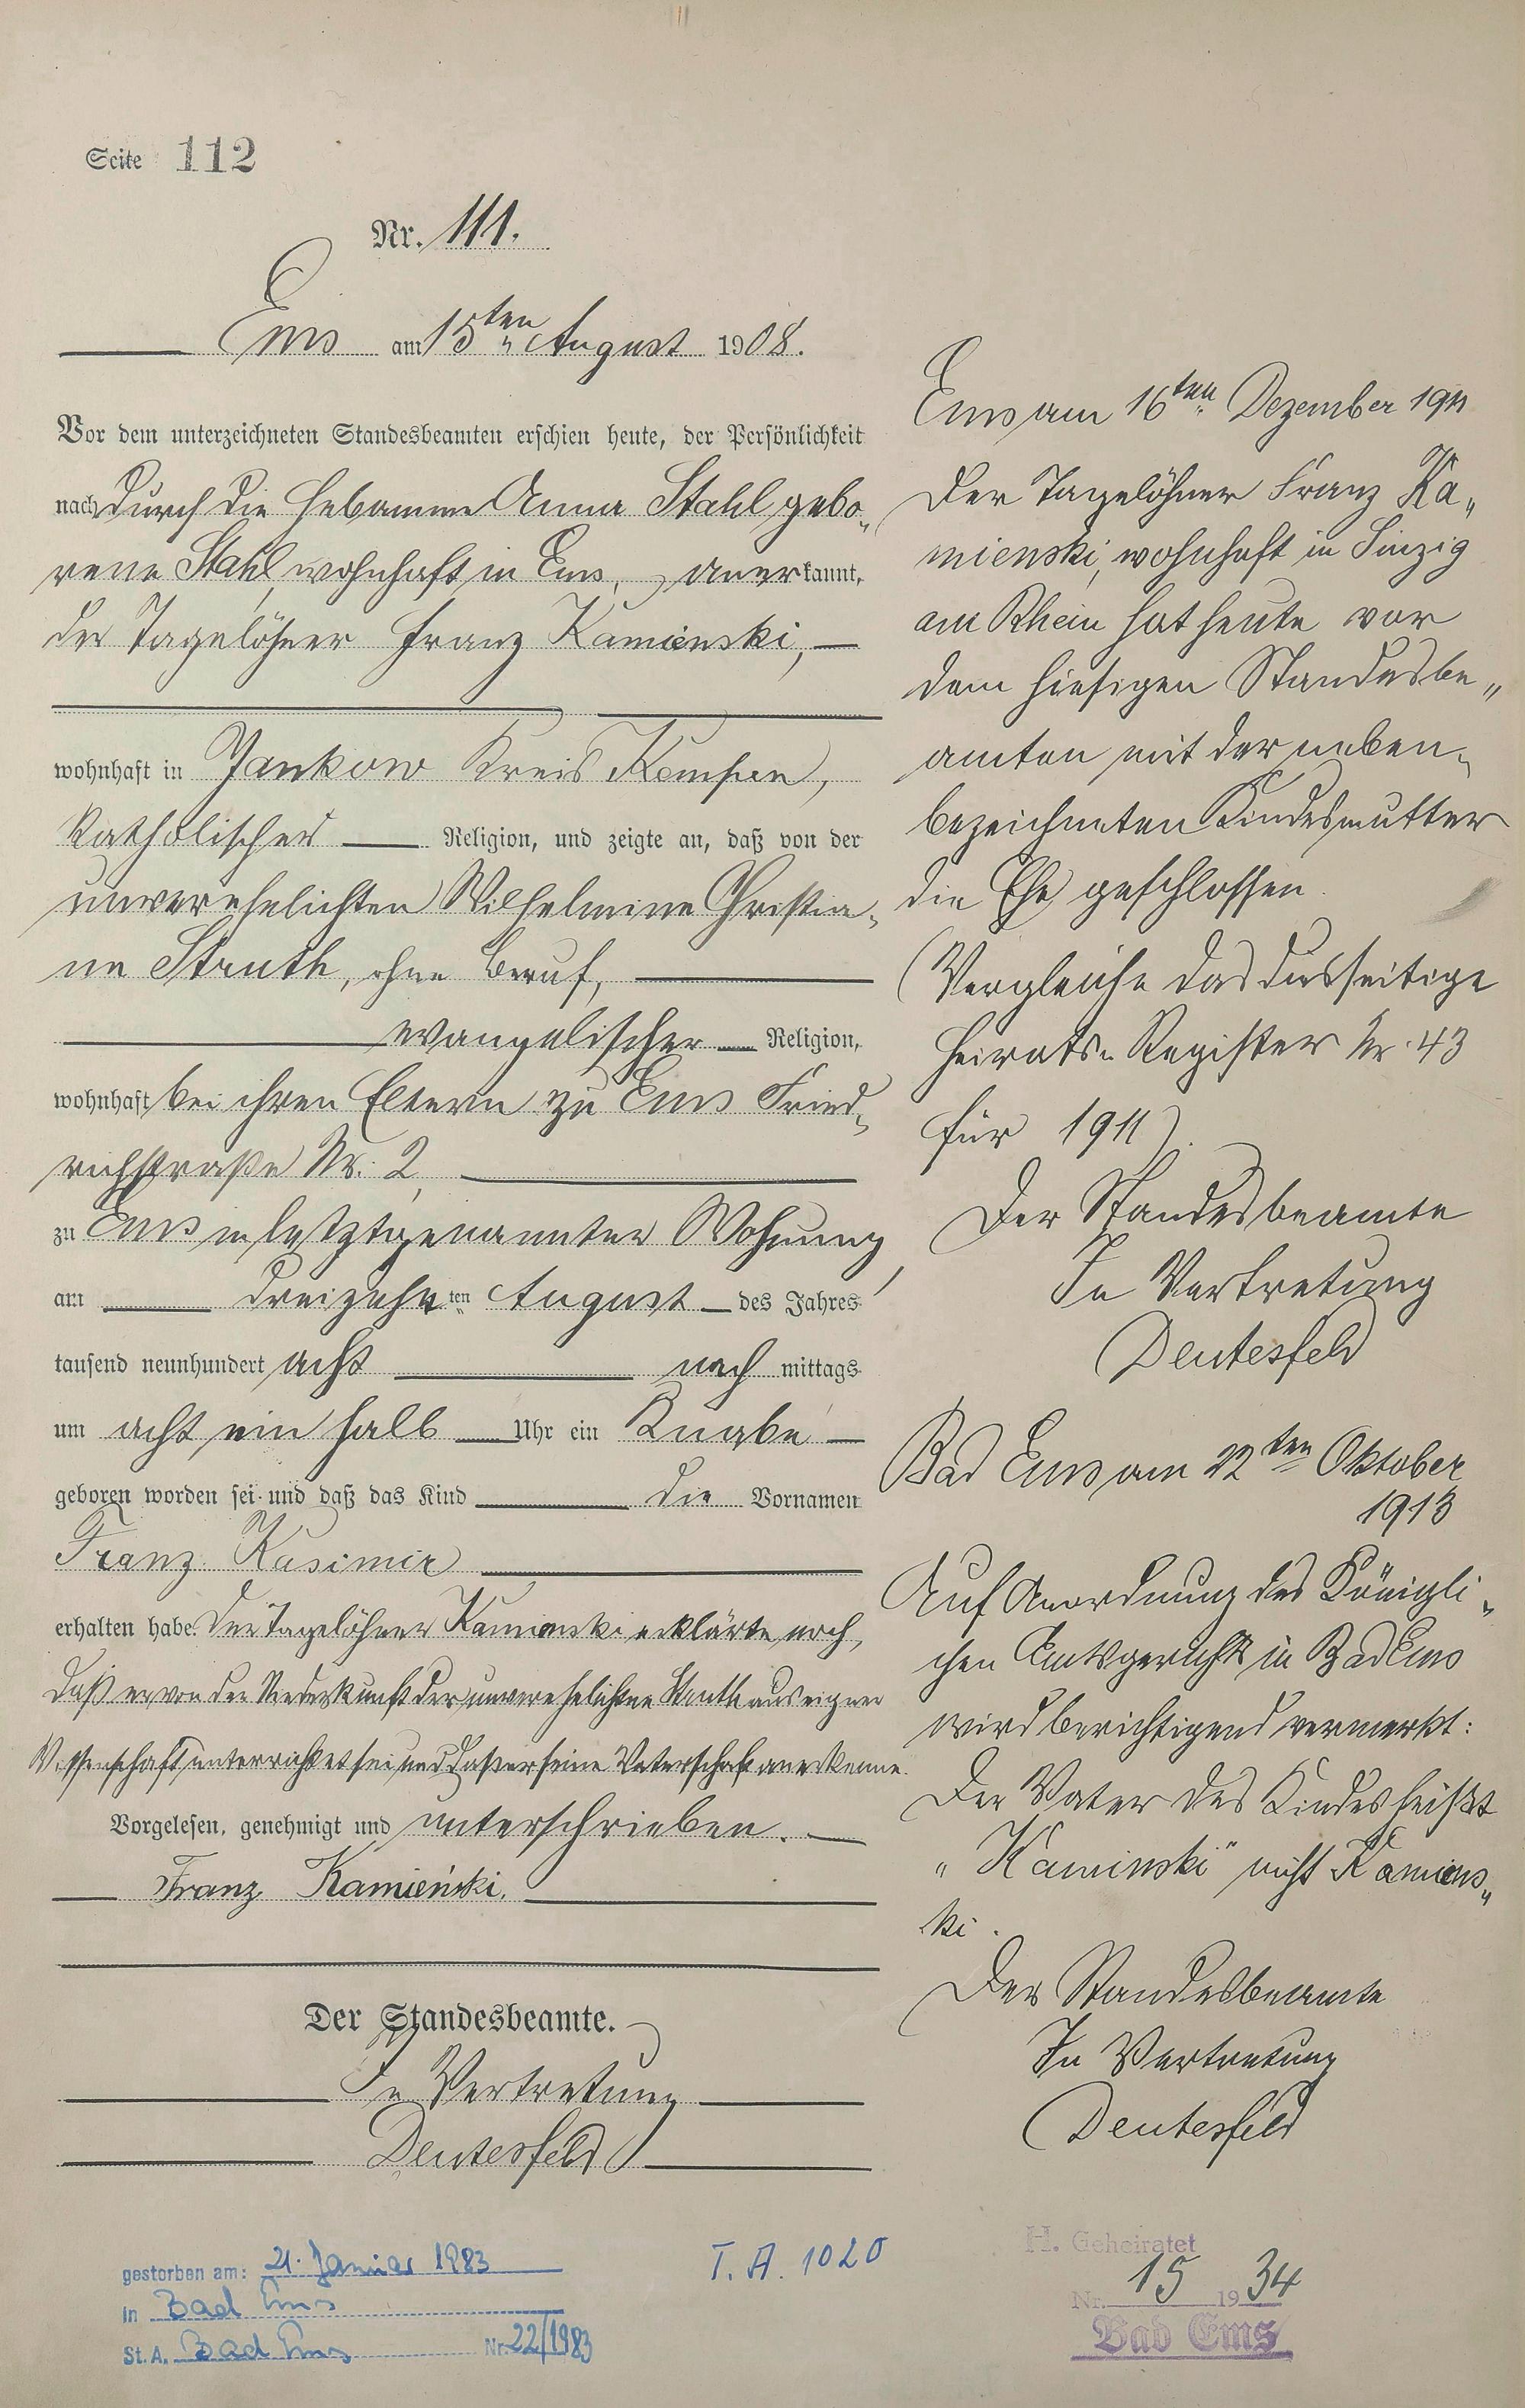 Seite 112
Nr. 111.
Ems am 15ten August 1908.
Vor dem unterzeichneten Standesbeamten erschien heute, der Persönlichkeit
nach durch die Hebamme Anna Stahl gebo„
rene Stahl, wohnhaft in Ems, anerkannt,
der Tagelöhner Franz Kamienski,
wohnhaft in Jankow Kreis Kempen,
katholischer Religion, und zeigte an, daß von der
unverehelichten Wilhelmine Christia„
ne Struth, ohne Beruf,
evangelischer Religion,
wohnhaft bei ihren Eltern zu Ems Fried„
richstraße Nr. 2
zu Ems in letztgenannter Wohnung,
am dreizehnten August des Jahres
tausend neunhundert acht nachmittags
um acht ein halb Uhr ein Knabe
geboren worden sei und daß das Kind die Vornamen
Franz Kasimir
erhalten habe. Der Tagelöhner Kamienski erklärte noch,
daß er von der Niederkunft der unverehelichten Struth aus eigner
Wissenschaft unterrichtet sei und daß er seine Vaterschaft anerkenne.
Vorgelesen, genehmigt und unterschrieben.
Franz Kamieński.
Der Standesbeamte.
In Vertretung
Deutesfeld
gestorben am: 21. Januar 1983
in Bad Ems
St. A. Bad Ems Nr. 22/1983
T. A. 1020
Ems am 16ten Dezember 1911
Der Tagelöhner Franz Ka„
mienski, wohnhaft in Sinzig
am Rhein hat heute vor
dem hiesigen Standesbe„
amten mit der neben„
bezeichneten Kindesmutter
die Ehe geschlossen.
(Vergleiche das diesseitige
Heirats„Register Nr. 43
für 1911).
Der Standesbeamte
In Vertretung
Deutesfeld
Bad Ems am 22ten Oktober
1913
Auf Anordnung des Königli„
chen Amtsgerichts in Bad Ems
wird berichtigend vermerkt:
Der Vater des Kindes heißt
„Kaminski" nicht Kamiens„
ki.
Der Standesbeamte
In Vertretung
Deutesfeld
H. Geheiratet
Nr. 15 1934
Bad Ems